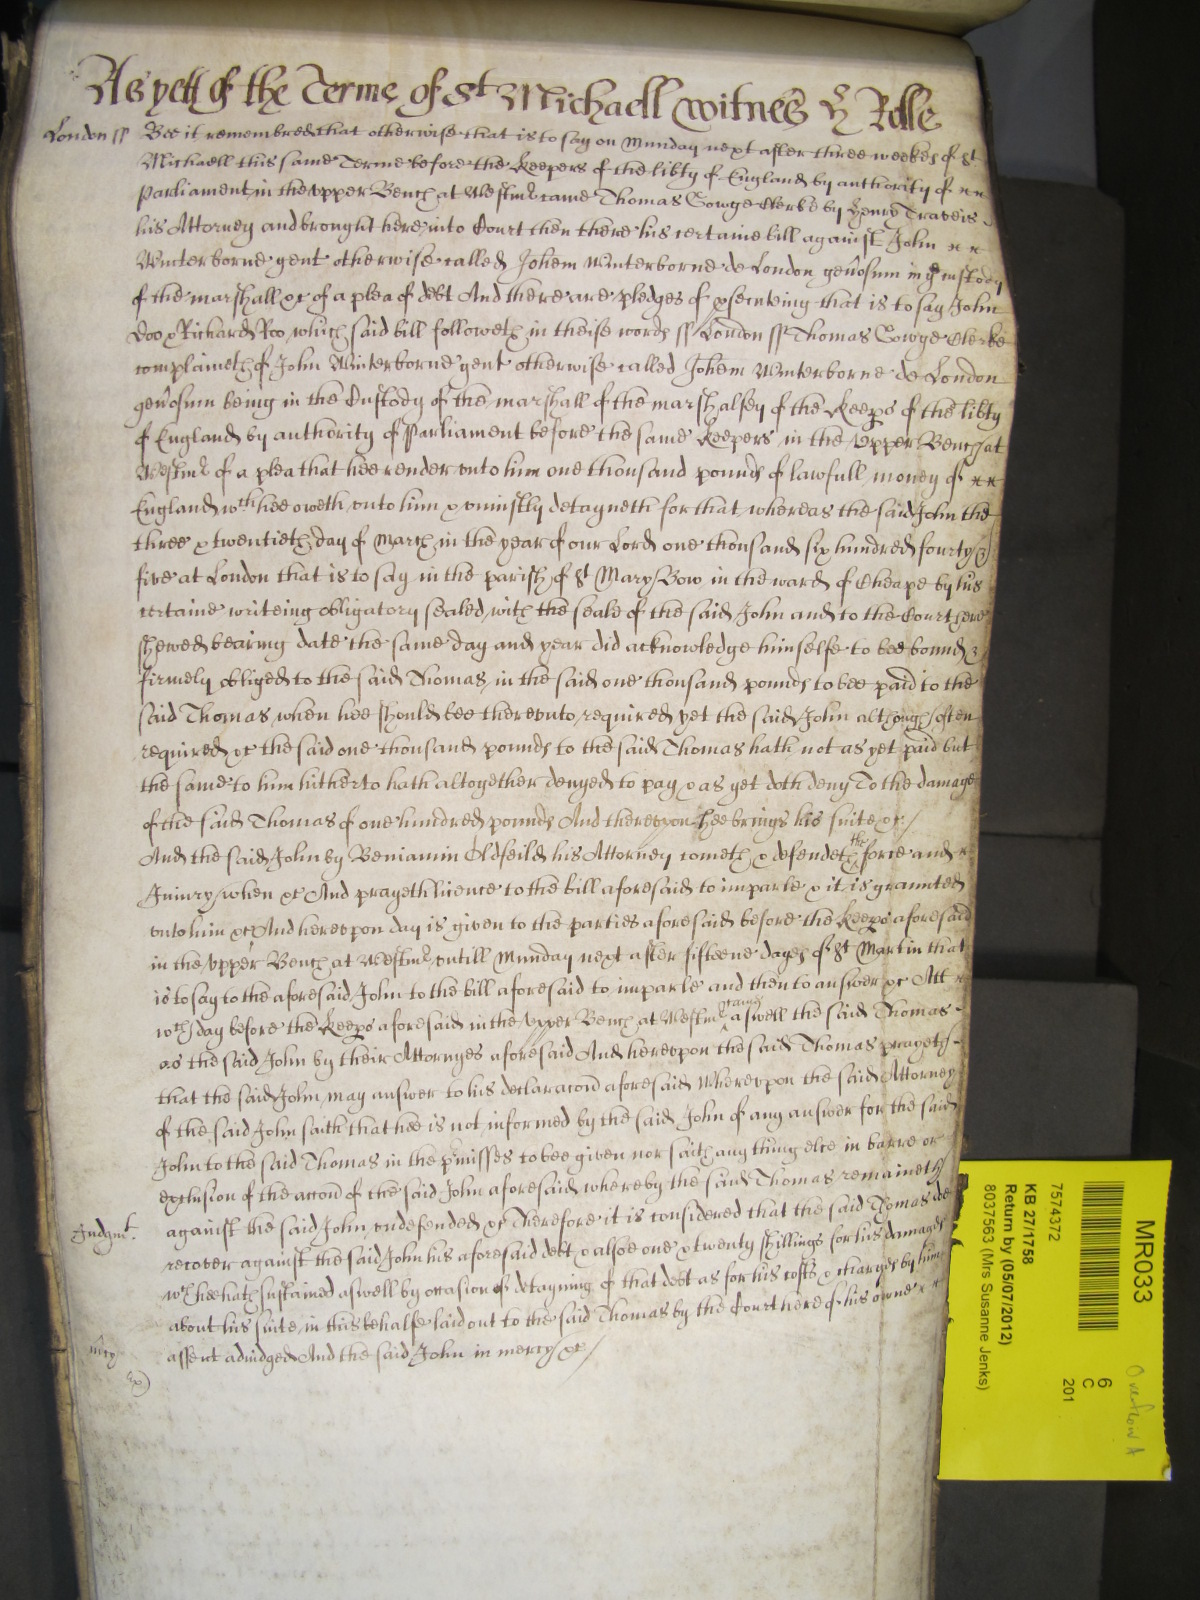 As yett of the Terme of St Michaell witnes H Rolle
London ss Bee it remembred that otherwise that is to say on Munday next after three weekes of St
Michaell this same Terme before the Keepers of the libty of England by authority of
Parliament in the upper Bench at Westmr came Thomas Gowge Clerke by Henry Traveis
his Attorney and brought here into Court then there his certaine bill against John
Winterborne gent otherwise called Johem Winterborne de London genosum in ye custody
of the marshall &c of a plea of debt And there are pledges of psecuteing that is to say John
Doo & Richard Roo which said bill followeth in theise words ss London ss Thomas Gowge Clerke
complaineth of John Winterborne gent otherwise called Johem Winterborne de London
genosum being in the Custody of the marshall of the marshalsey of the Keeps of the libty
of England by authority of Parliament before the same Keepers in the Upper Bench at
Westmr of a plea that hee render unto him one thousand pounds of lawfull money of
England wch hee oweth unto him & uniustly detayneth for that whereas the said John the
three & twentieth day of March in the year of our Lord one thousand six hundred fourty
five at London that is to say in the parish of St Mary Bow in the ward of Cheape by his
certaine writeing obligatory sealed with the seale of the said John and to the Court here
shewed bearing date the same day and year did acknowledge himselfe to bee bound &
firmely obliged to the said Thomas in the said one thousand pounds to bee paid to the
said Thomas when hee should bee thereunto required yet the said John although often
required &c the said one thousand pounds to the said Thomas hath not as yet paid but
the same to him hitherto hath altogether denyed to pay & as yet doth deny To the damage
of the said Thomas of one hundred pounds And thereupon hee brings his suite &c
And the said John by Beniamin Oldfeild his Attorney cometh & defendeth the force and
Iniury when &c And prayeth licence to the bill aforesaid to imparle & it is graunted
unto him &c And hereupon day is given to the parties aforesaid before the Keeps aforesaid
in the upper Bench at Westmr untill Munday next after fifteene dayes of St Martin that
is to say to the aforesaid John to the bill aforesaid to imparle and then to answer &c Att
wch day before the Keeps aforesaid in the Upper Bench at Westmr came aswell the said Thomas
as the said John by their Attornyes aforesaid And hereupon the said Thomas prayeth
that the said John may answer to his declaracon aforesaid Whereupon the said Attorney
of the said John saith that hee is not informed by the said John of any answer for the said
John to the said Thomas in the pmisses to bee given nor saith any thing else in barre or
exclusion of the accon of the said John aforesaid whereby the said Thomas remaineth
Iudgmt against the said John undefended &c Therefore it is considered that the said Thomas doe
recover against the said John his aforesaid debt & alsoe one & twenty shillings for his damages
wch hee hath sustained aswell by occasion of detayning of that debt as for his costs & charges by him
about his suite in this behalfe laid out to the said Thomas by the Court here of his owne
mcy assent adiudged And the said John in mercy &c
MR033
7574372
KB 27/1758
Return by (05/07/2012)
8037563 (Mrs Susanne Jenks)
6
C
201
Overflow A